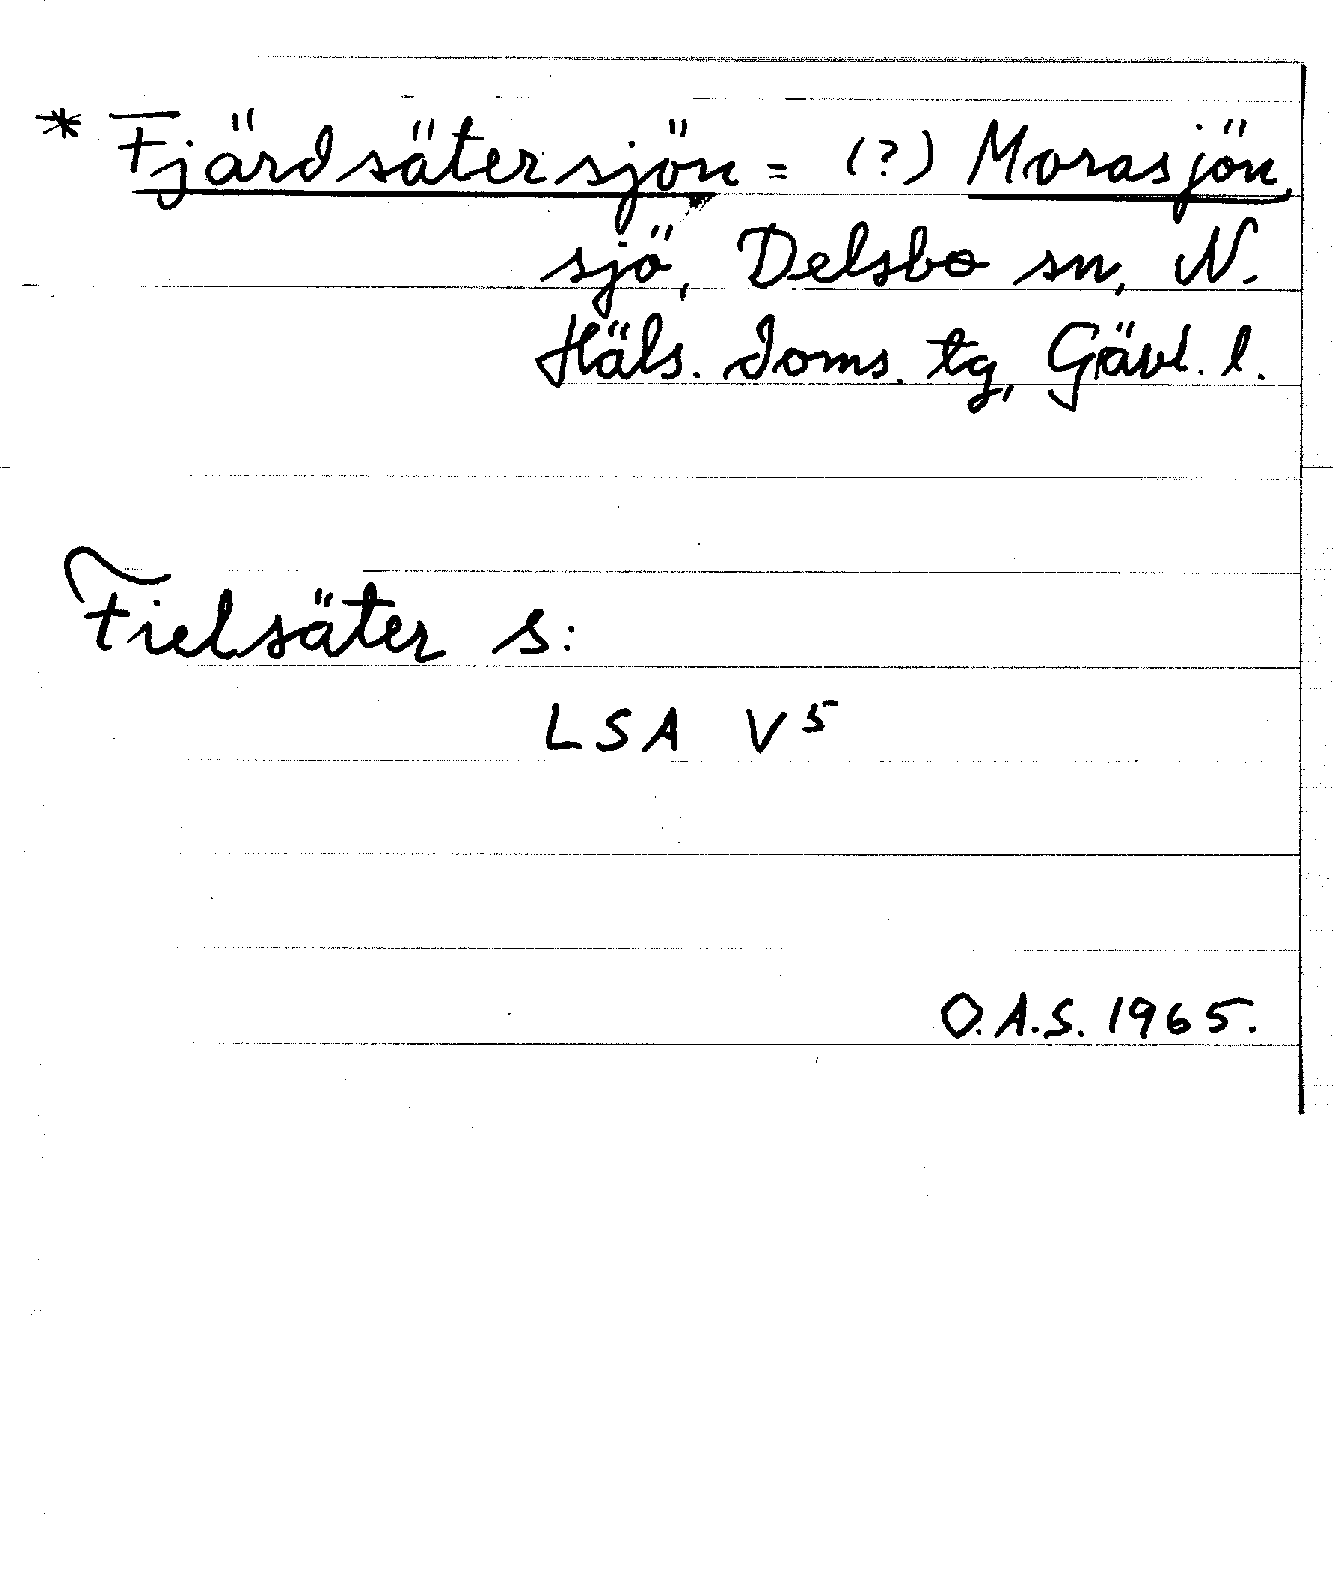 * Fjärdsätersjön = (?) Morasjön,
sjö, Delsbo sn, N.
Häls. doms. tg, Gävl. l.
Fielsäter s:
LSA V5
O.A.S. 1965.